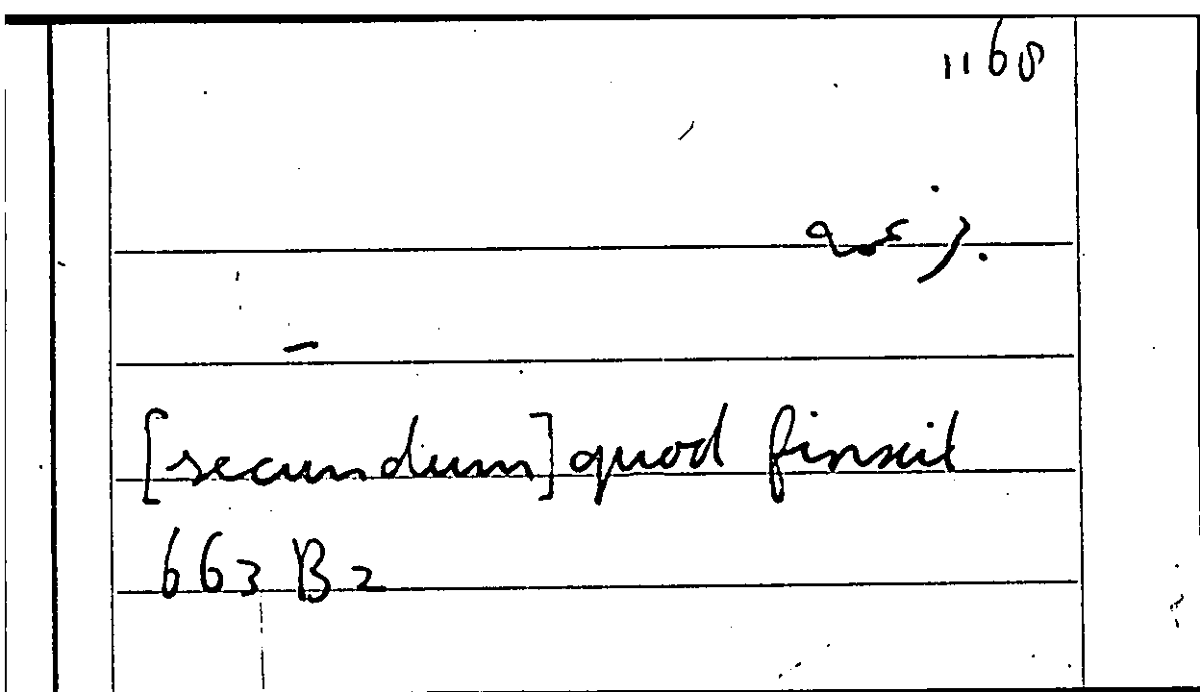 1168
زعم.
[secundum] quod finxit
663 B2